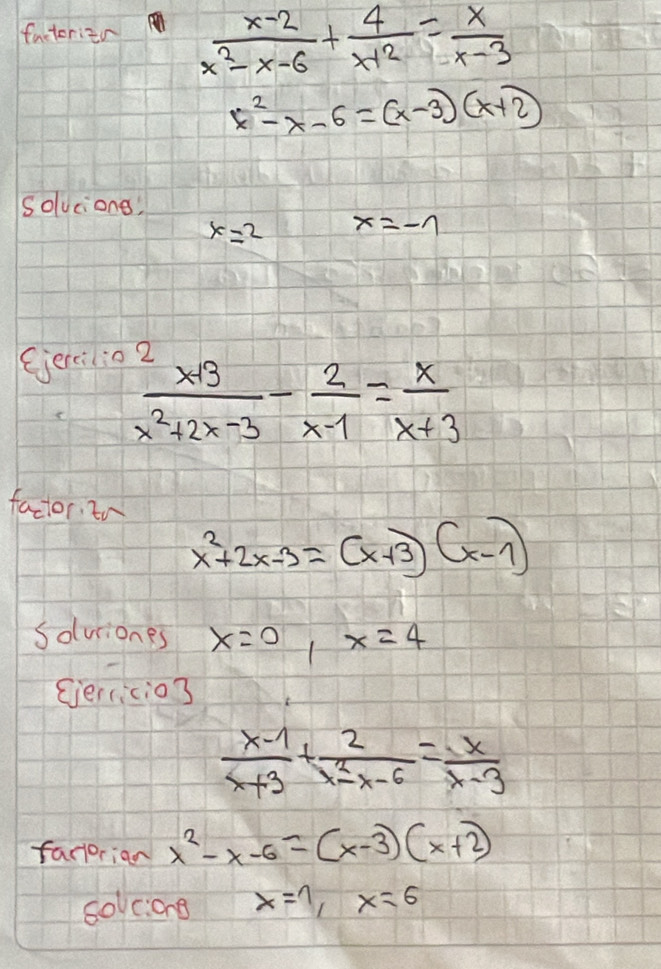 factorizr x-2/x²-x-6 + 4/x+2 = x/x-3
x²-x-6=(x-3)(x+2)
Soluciones: x=2 x=-1
Ejercicio 2
x+3/x²+2x-3 - 2/x-1 = x/x+3
factorizr
x²+2x-3=(x+3)(x-1)
Soluriones x=0, x=4
Ejercicio 3
x-1/x+3 + 2/x²-x-6 = x/x-3
x²-x-6=(x-3)(x+2)
x=1, x=6